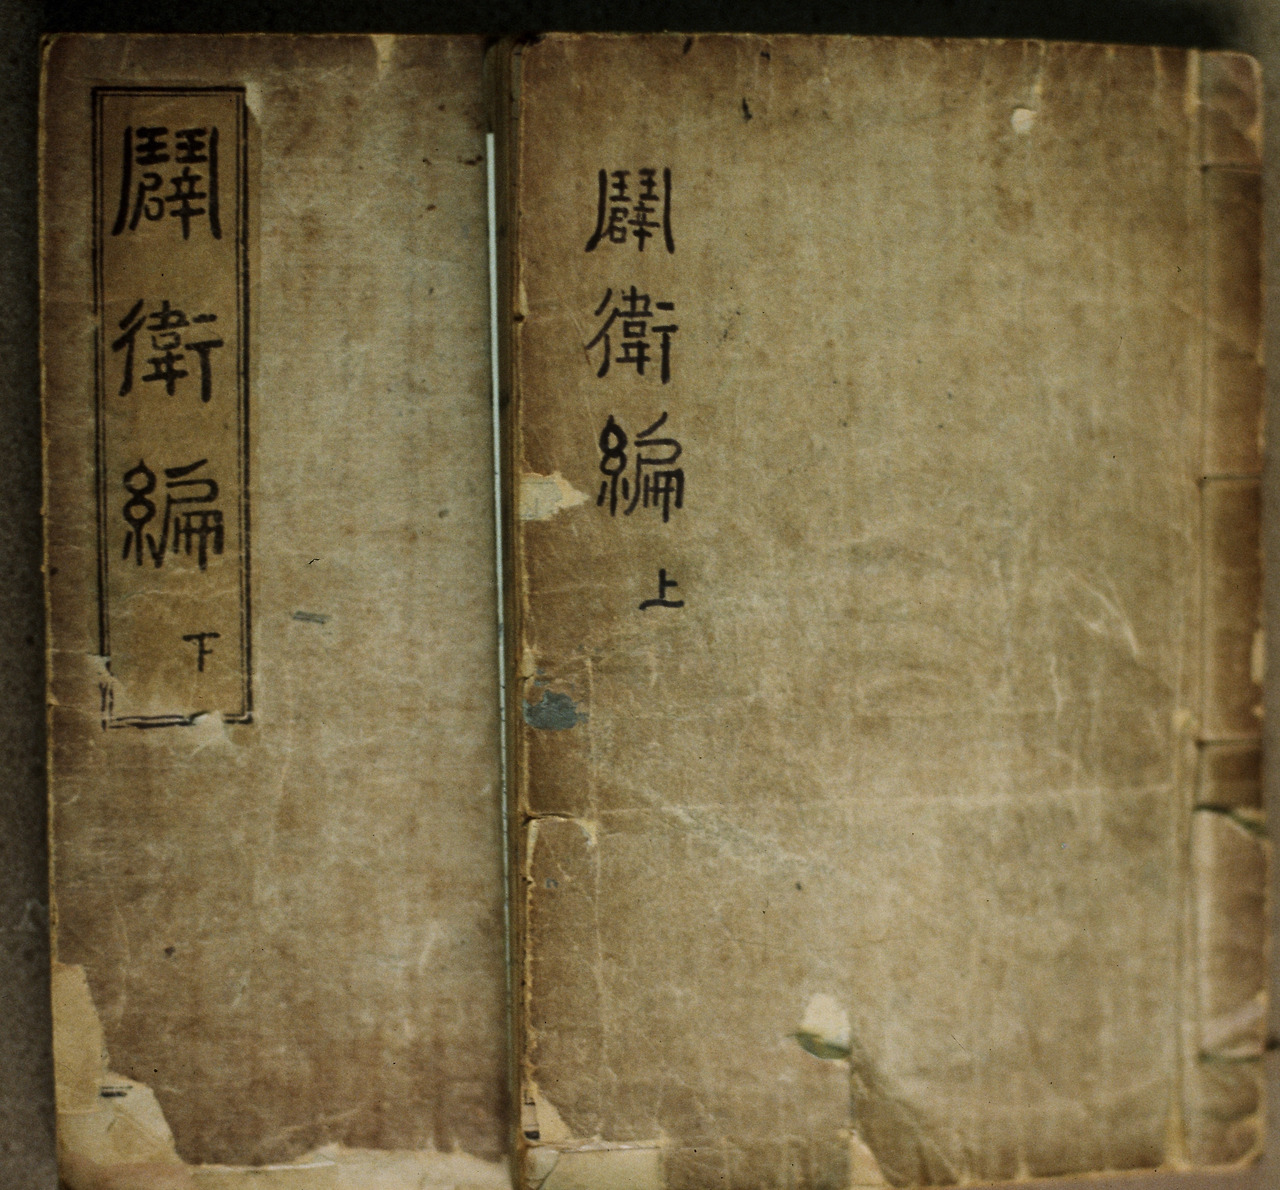 闢衛編 上
闢衛編 下